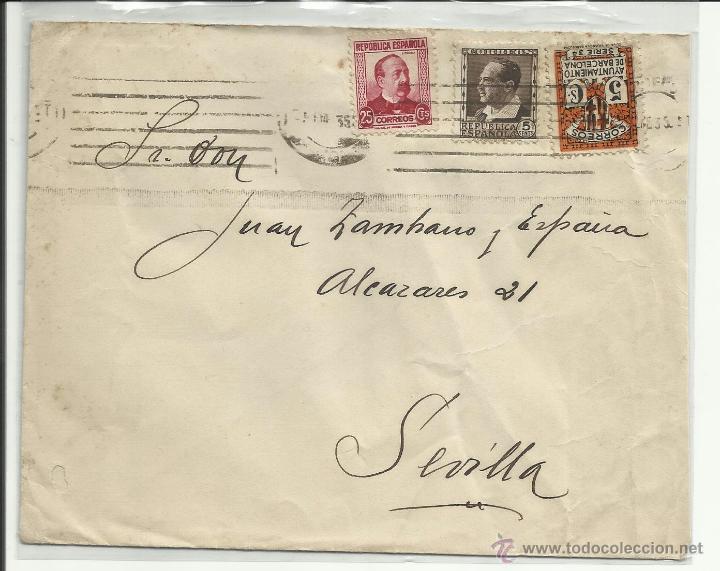 REPÚBLICA ESPAÑOLA
25 CORREOS CTS
CORREOS
REPÚBLICA
ESPAÑOLA
5 CTS
CORREOS
5 Cs
AYUNTAMIENTO
DE BARCELONA
SERIE 34
Sr. don
Juan Zambrano y España
Alcazares 21
Sevilla
www.todocoleccion.net